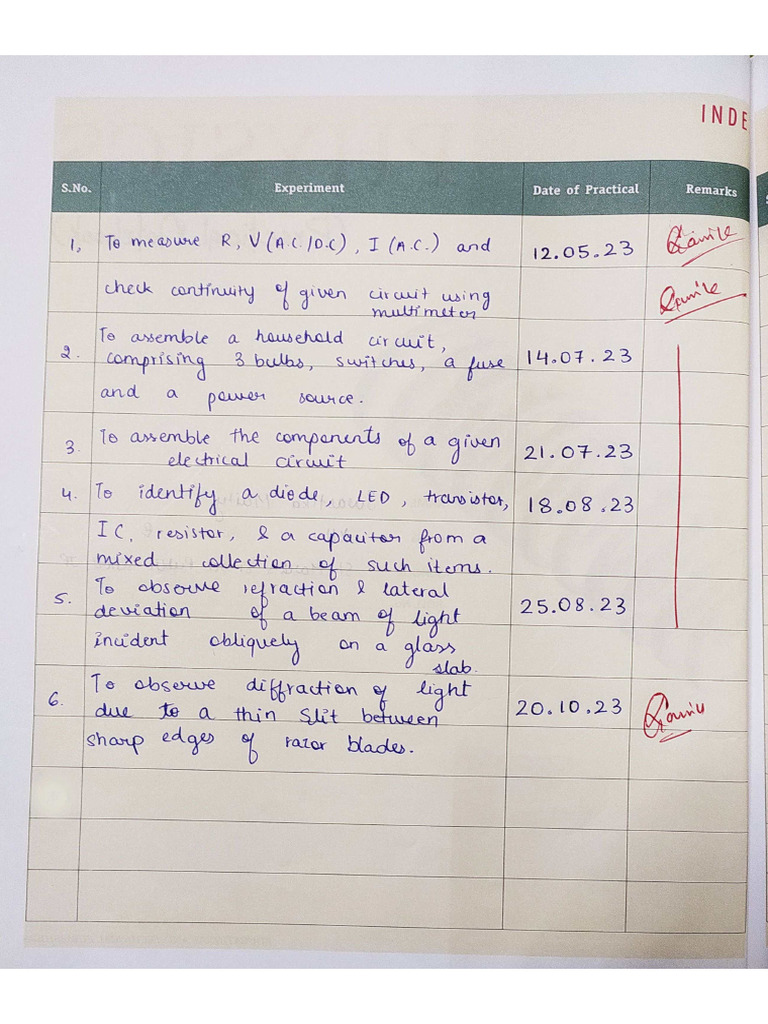 INDE
S.No. Experiment Date of Practical Remarks
1, To measure R, V (A.C./D.C), I (A.C.) and 12.05.23
check continuity of given circuit using
multimeter
2. To assemble a household circuit,
comprising 3 bulbs, switches, a fuse 14.07.23
and a power source.
3. To assemble the components of a given 21.07.23
electrical circuit
4. To identify a diode, LED, transistor, 18.08.23
IC, resistor, & a capacitor from a
mixed collection of such items.
5. To observe refraction & lateral
deviation of a beam of light 25.08.23
incident obliquely on a glass
slab.
6. To observe diffraction of light
due to a thin slit between 20.10.23
sharp edges of razor blades.